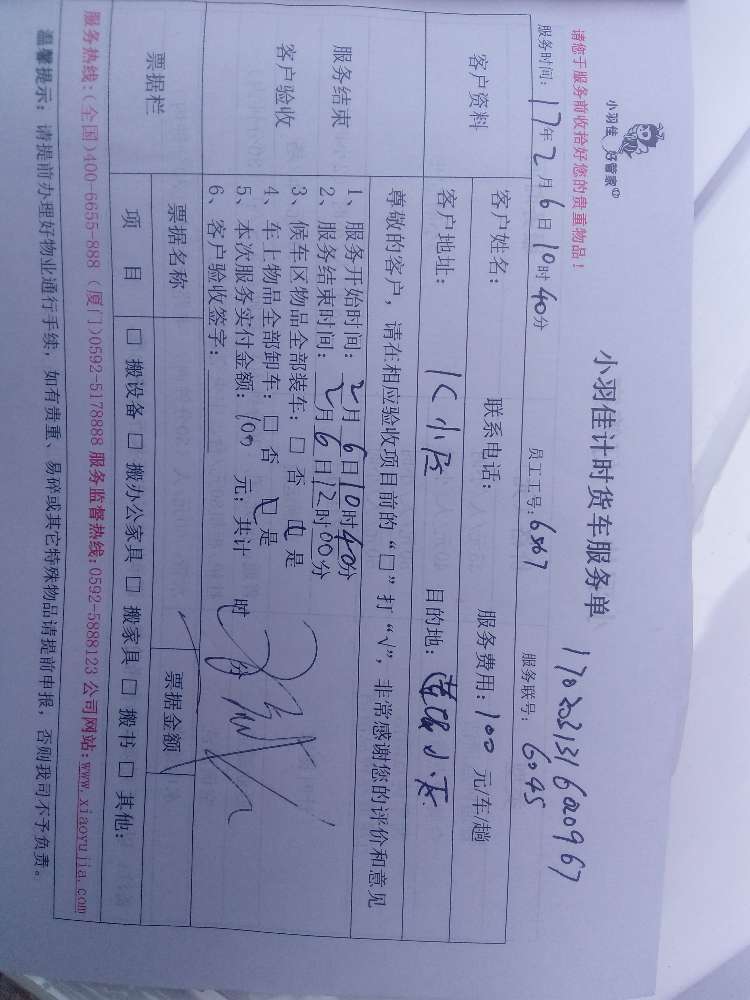 小羽佳 好管家
请您于服务前收拾好您的贵重物品！
小羽佳计时货车服务单
170202131600967
服务时间：17年2月6日10时40分 员工工号：6567 服务联号：6045
客户资料
客户姓名： 联系电话： 服务费用：100 元/车/趟
客户地址： 目的地：
服务结束
客户验收
尊敬的客户，请在相应验收项目前的“□”打“√”，非常感谢您的评价和意见
1、服务开始时间：2月6日10时40分
2、服务结束时间：2月6日12时00分
3、候车区物品全部装车：□ 否 □ 是
4、车上物品全部卸车：□ 否 □ 是
5、本次服务实付金额：100 元；共计 时 分
6、客户验收签字：
票据栏
票据名称 票据金额
项 目 □ 搬设备 □ 搬办公家具 □ 搬家具 □ 搬书 □ 其他：
服务热线：(全国)400-6655-888 (厦门)0592-5178888 服务监督热线:0592-5888123 公司网站:www.xiaoyujia.com
温馨提示：请提前办理好物业通行手续，如有贵重、易碎或其它特殊物品请提前申报，否则我司不予负责。